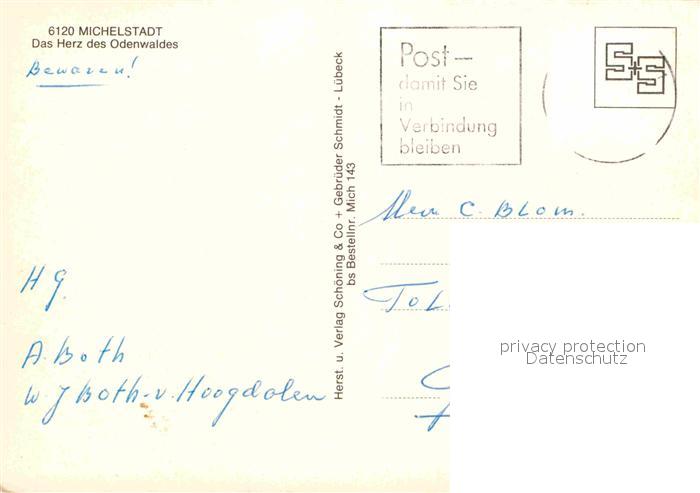 6120 MICHELSTADT
Das Herz des Odenwaldes
Bewaren!
H G.
A. Both
W J Both-v. Hoogdalem
Herst. u. Verlag Schöning & Co + Gebrüder Schmidt - Lübeck
bs Bestellnr. Mich 143
Post —
damit Sie
in
Verbindung
bleiben
S+S
C. Blom.
privacy protection
Datenschutz